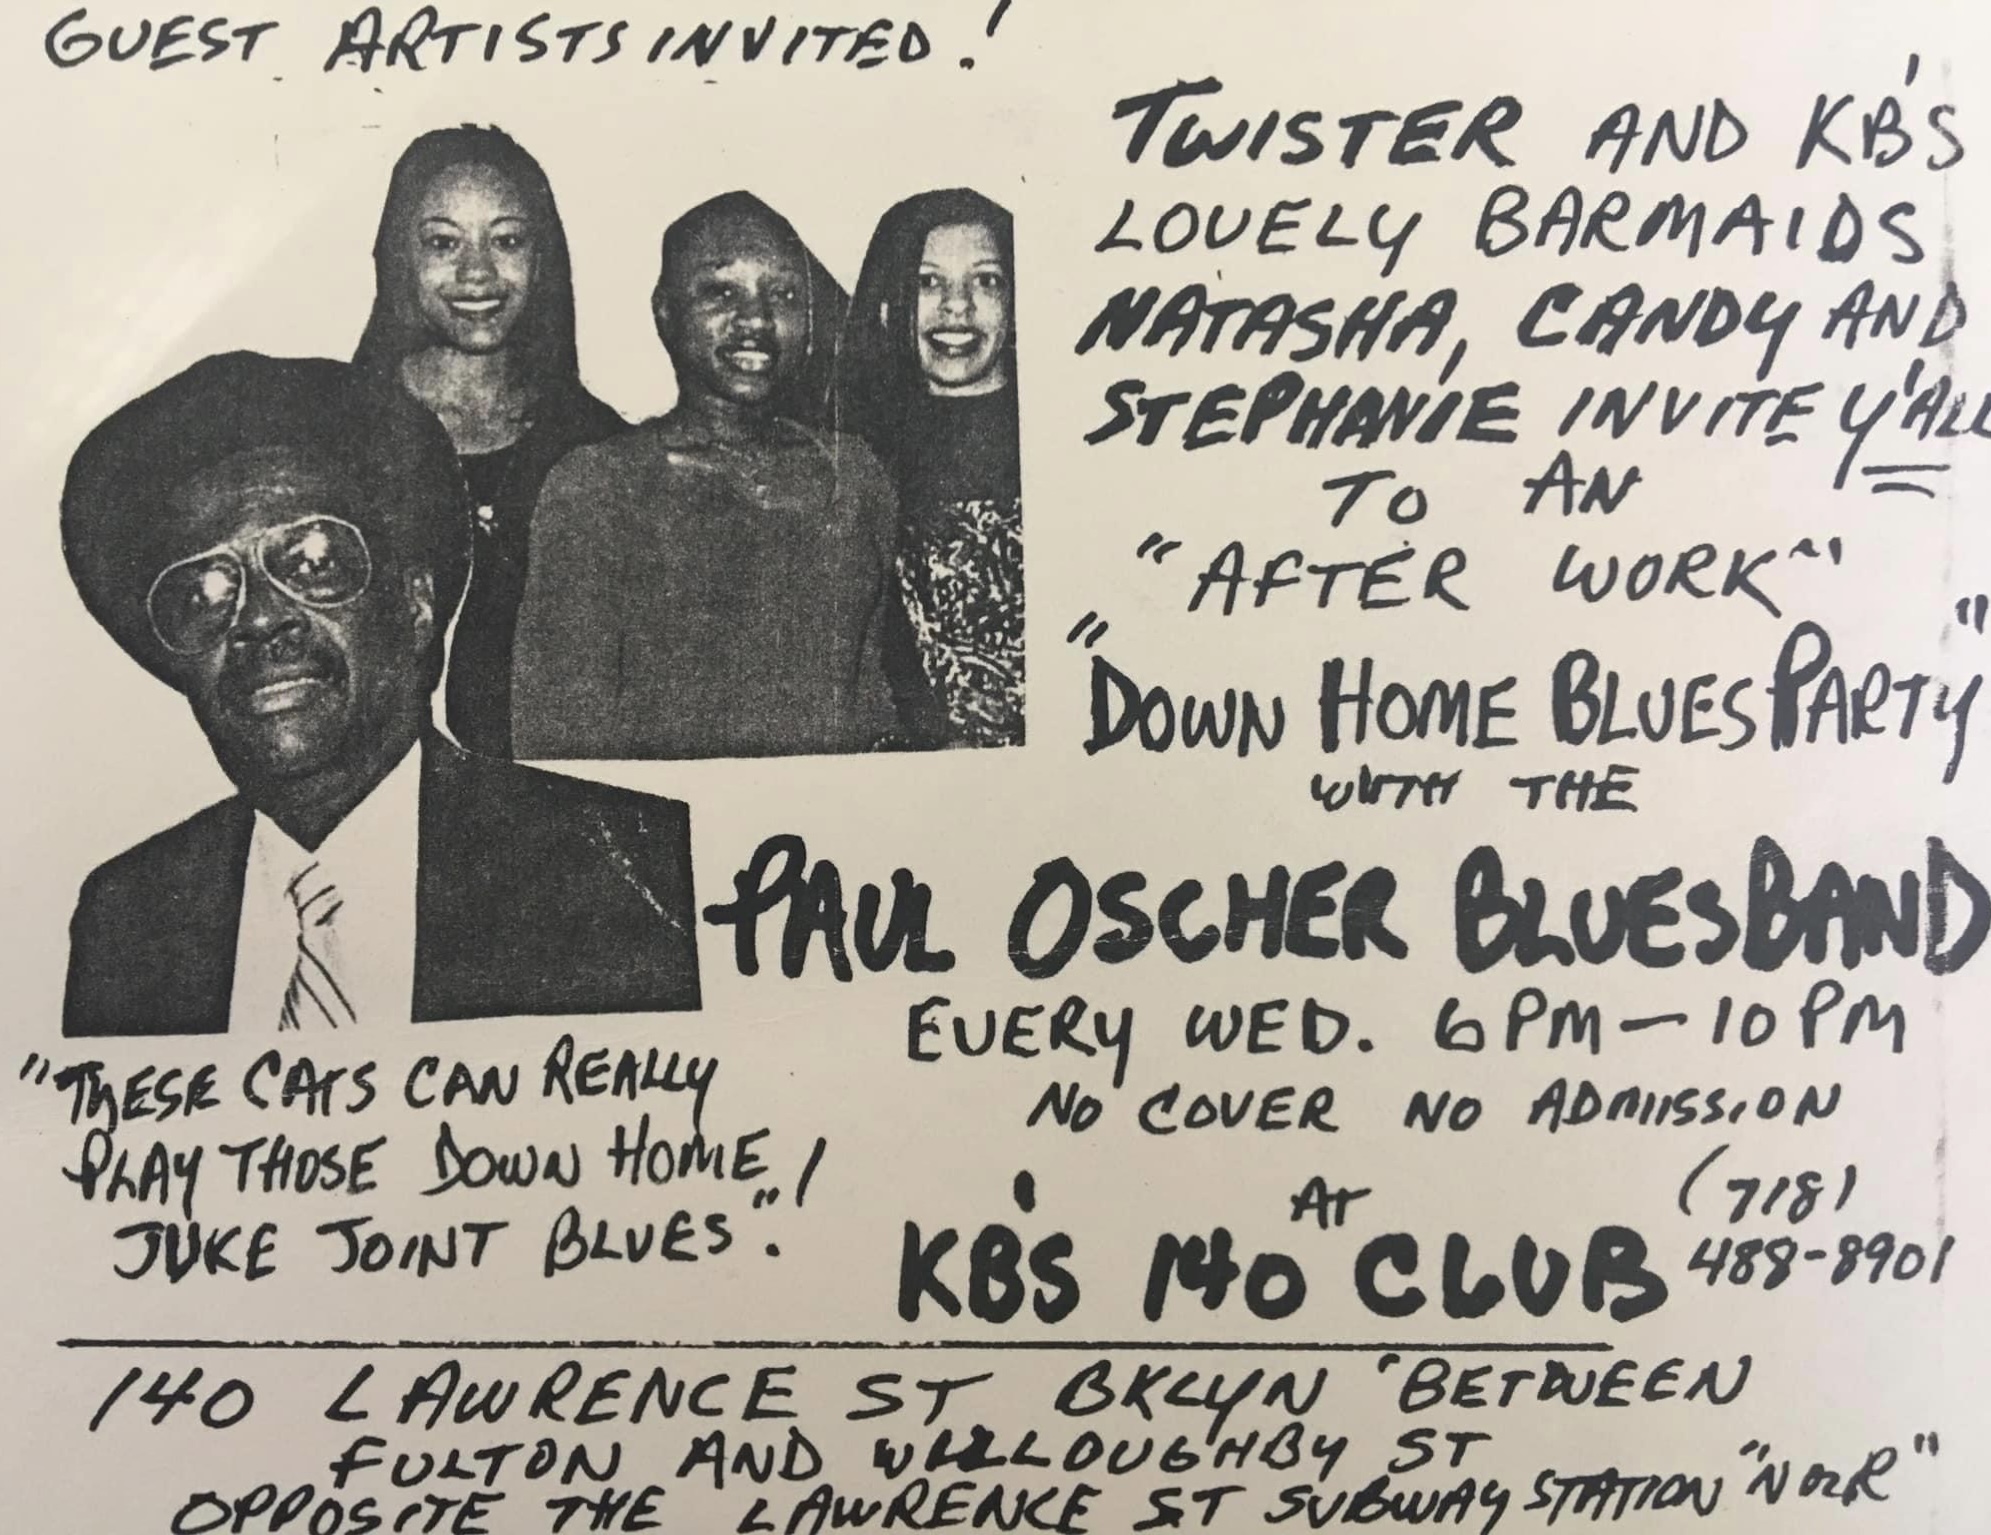 GUEST ARTISTS INVITED!
TWISTER AND KB'S
LOVELY BARMAIDS
NATASHA, CANDY AND
STEPHANIE INVITE Y'ALL
TO AN
"AFTER WORK"
"DOWN HOME BLUES PARTY"
WITH THE
PAUL OSCHER BLUES BAND
EVERY WED. 6PM-10PM
NO COVER NO ADMISSION
AT
KB'S 140 CLUB
(718)
488-8901
"THESE CATS CAN REALLY
PLAY THOSE DOWN HOME
JUKE JOINT BLUES"!
140 LAWRENCE ST BKLYN BETWEEN
FULTON AND WILLOUGHBY ST
OPPOSITE THE LAWRENCE ST SUBWAY STATION "N OR R"